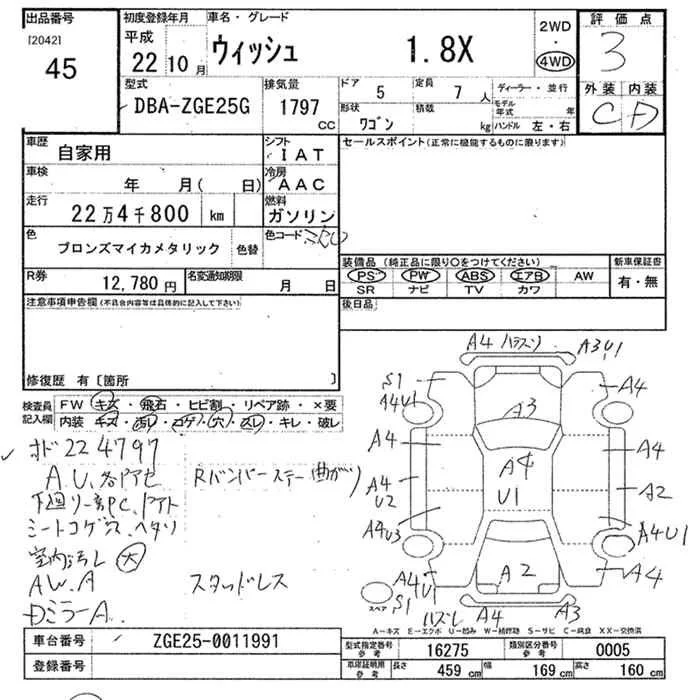 出品番号 初度登録年月 車名・グレード 2WD 評価点
[2042] 平成 ウィッシュ 1.8X 4WD 3
45 22年10月
型式 排気量 ドア 5 定員 7人 ディーラー・並行 外装 内装
DBA-ZGE25G 1797cc 形状 ワゴン 積載 kg モデル年式 年 C D
ハンドル 左・右
車歴 自家用 シフト IAT セールスポイント(正常に機能するものに限ります)
車検 年 月( 日) 冷房 AAC
走行 22万4千800 km 燃料 ガソリン
色 ブロンズマイカメタリック 色替 色コード
装備品(純正品に限り○をつけてください) 新車保証書
PS PW ABS エアB AW 有・無
SR ナビ TV カワ
R券 12,780円 名変通知期限 月 日
後日品
注意事項申告欄(不具合内容等は具体的に記入して下さい)
修復歴 有〔箇所 〕
検査員記入欄 FW キズ・飛石・ヒビ割・リペア跡・×要
内装 キズ・汚レ・コゲ・穴・スレ・キレ・破レ
224797
A.U. Rバンパーステー曲がり
室内汚レ 大
AW.A スタッドレス
DミラーA.
A4 A3U1
S1 A4U1 A4
A3
A4 A4
A4 U1
A4U2 A2
A4U3 A4U1
A2
A4U1 A4
スペア S1 ハズレ A4 A3
A-キズ E-エクボ U-凹み W-補修跡 S-サビ C-腐食 XX-交換済
車台番号 ZGE25-0011991
登録番号
型式指定番号 参考 16275 類別区分番号 参考 0005
車庫証明用 参考 長さ 459cm 幅 169cm 高さ 160cm